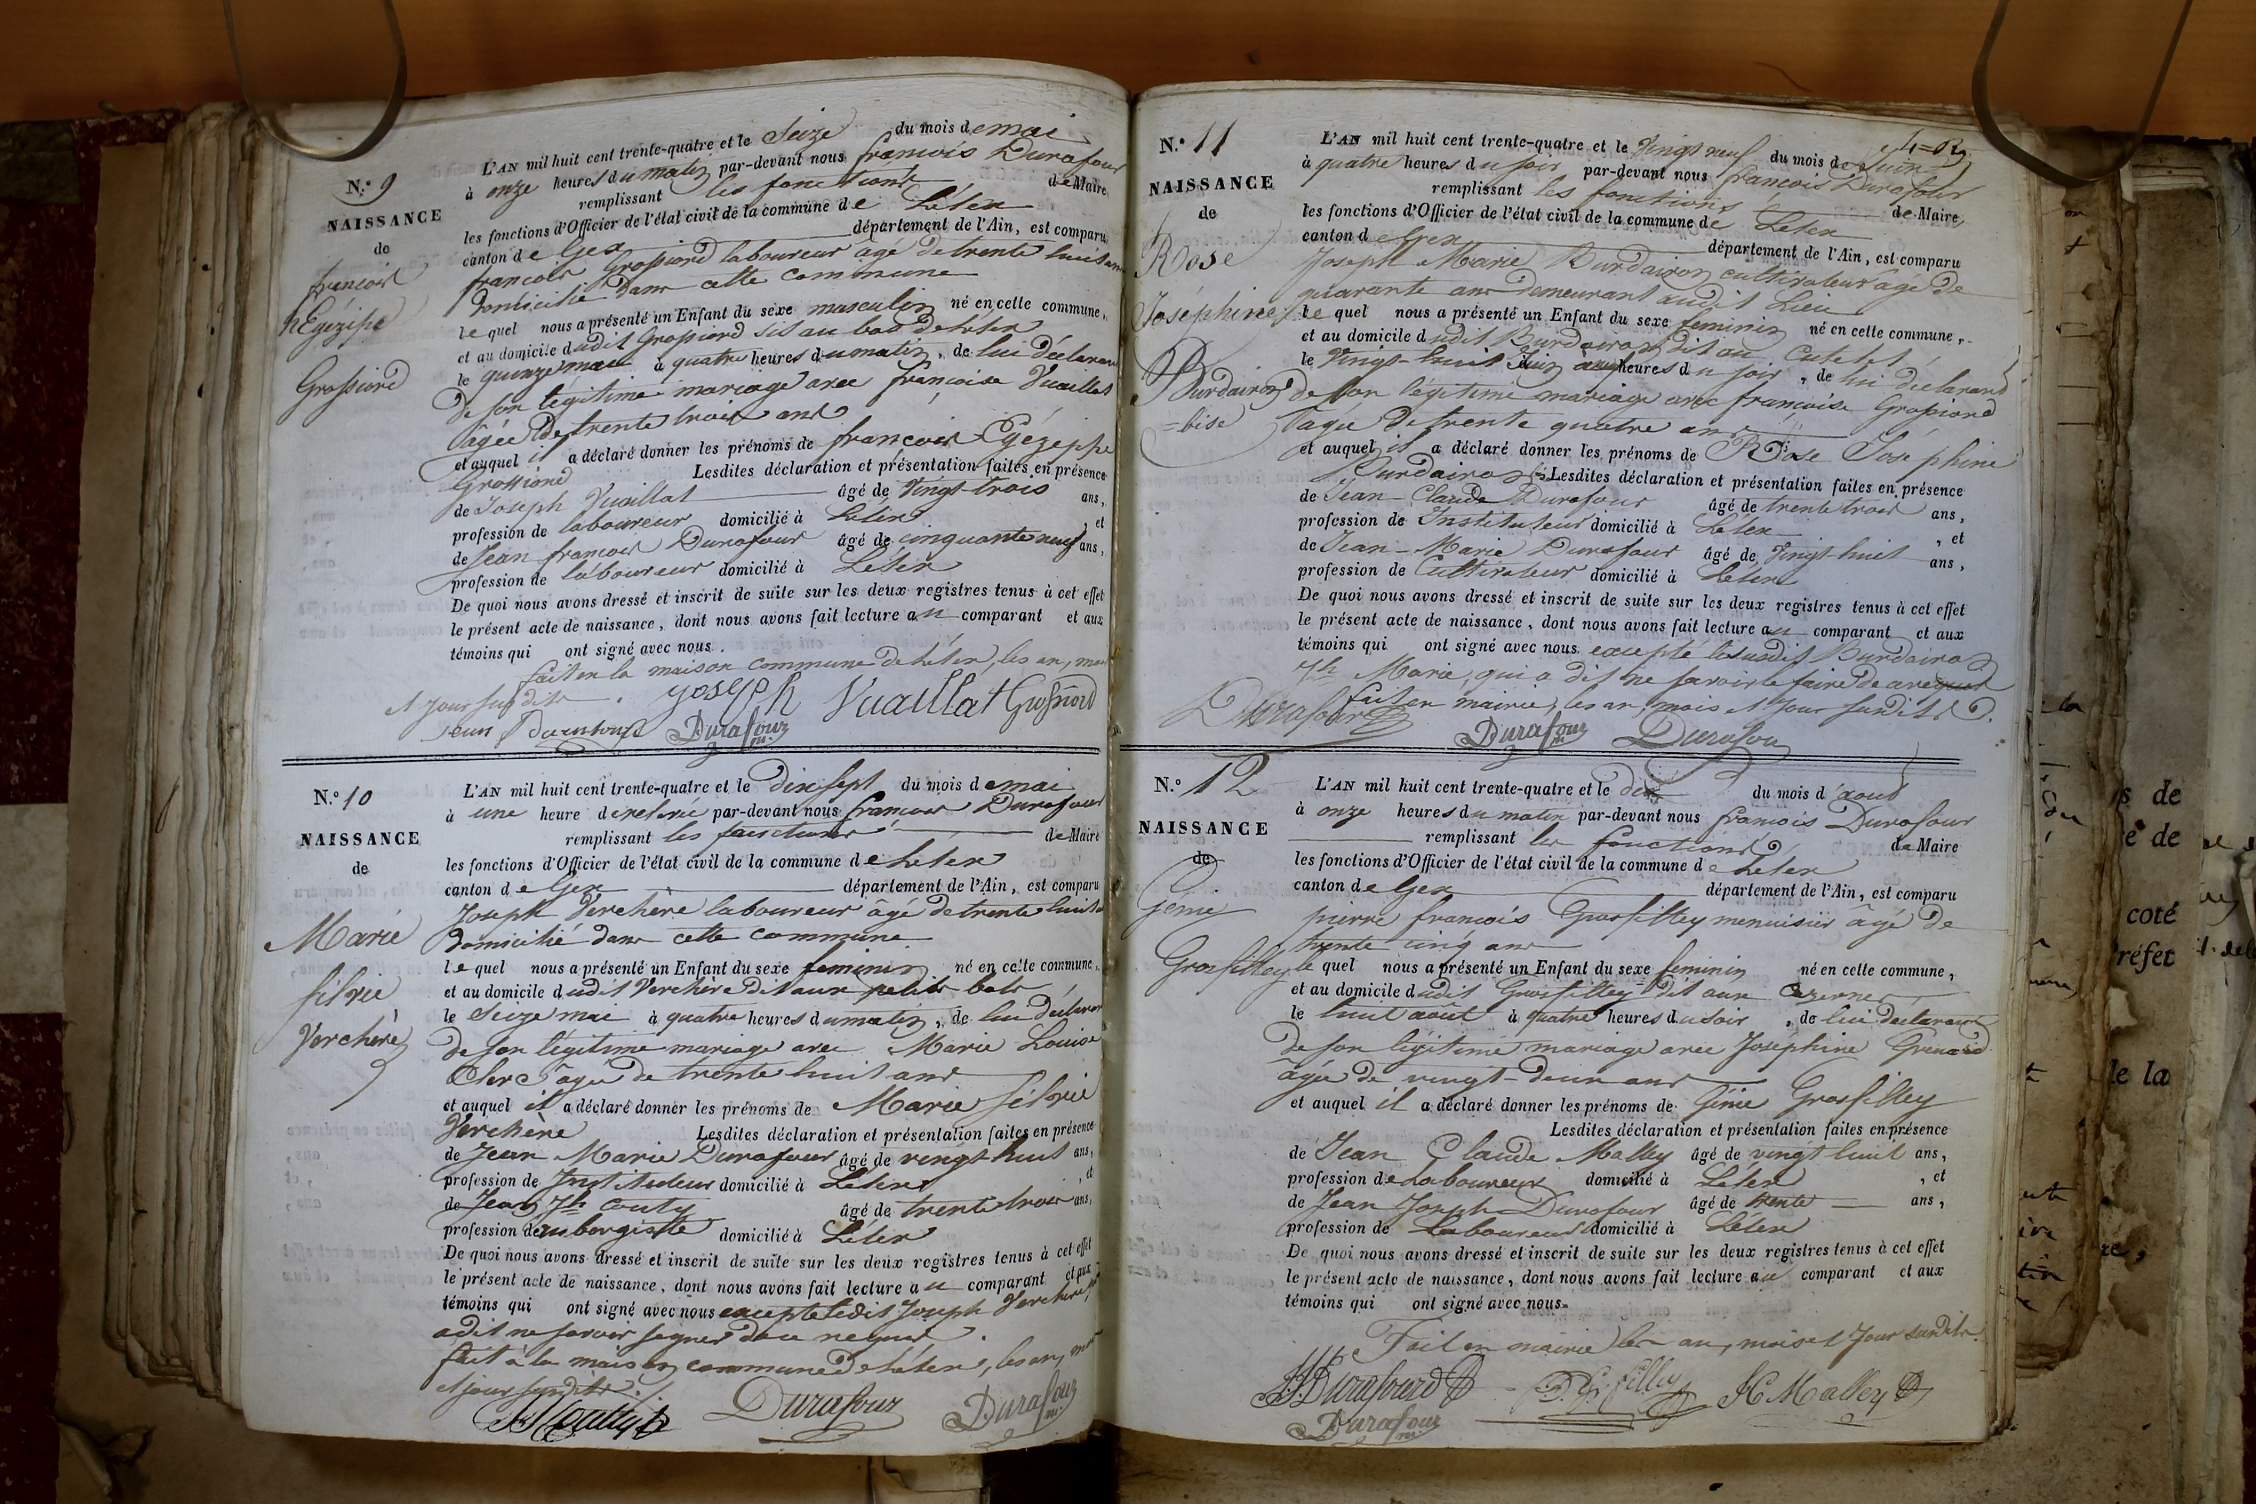 N.° 9
NAISSANCE
de
françois
hEgézipe
Grossiord
L'AN mil huit cent trente-quatre et le Seize du mois de mai
à onze heures du matin par-devant nous françois Durafour
remplissant les fonctions de Maire
les fonctions d'Officier de l'état civil de la commune de Lélex
canton de Gex département de l'Ain, est comparu
françois Grossiord laboureur âgé de trente huit ans
Domicilié dans cette commune
le quel nous a présenté un Enfant du sexe masculin né en cette commune,
et au domicile dudit Grossiord sis au bas de Lélex
le quinze mai à quatre heures du matin, de lui déclarant
de son légitime mariage avec françoise Vuaillat
âgée de trente trois ans
et auquel il a déclaré donner les prénoms de françois Egézippe
Grossiord Lesdites déclaration et présentation faites en présence
de Joseph Vuaillat âgé de Vingt-trois ans,
profession de laboureur domicilié à Lélex, et
de Jean françois Durafour âgé de cinquante neuf ans,
profession de laboureur domicilié à Lélex
De quoi nous avons dressé et inscrit de suite sur les deux registres tenus à cet effet
le présent acte de naissance, dont nous avons fait lecture au comparant et aux
témoins qui ont signé avec nous.
fait en la maison commune de Lélex, les an, mois
et jour susdits. joseph Vuaillat Grossiord
Jean Durafour Durafour m.
N.° 10
NAISSANCE
de
Marie
silvie
Verchère
L'AN mil huit cent trente-quatre et le dix sept du mois de mai
à une heure de relevée par-devant nous françois Durafour
remplissant les fonctions de Maire
les fonctions d'Officier de l'état civil de la commune de Lélex
canton de Gex département de l'Ain, est comparu
Joseph Verchère laboureur âgé de trente huit
Domicilié dans cette commune
le quel nous a présenté un Enfant du sexe feminin né en cette commune,
et au domicile dudit Verchère dit aux petits bots
le Seize mai à quatre heures du matin, de lui déclarant
de son légitime mariage avec Marie Louise
Clerc âgée de trente huit ans
et auquel il a déclaré donner les prénoms de Marie silvie
Verchère Lesdites déclaration et présentation faites en présence
de Jean Marie Durafour âgé de vingt huit ans,
profession de Instituteur domicilié à Lélex, et
de Jean Jh Couty âgé de trente trois ans,
profession de aubergiste domicilié à Lélex
De quoi nous avons dressé et inscrit de suite sur les deux registres tenus à cet effet
le présent acte de naissance, dont nous avons fait lecture au comparant et aux
témoins qui ont signé avec nous excepté ledit Joseph Verchère, qui
a dit ne savoir signer de ce requis.
fait à la maison commune de Lélex, les an, mois
et jour susdits.
JJ Couty Durafour Durafour m.
N.° 11
NAISSANCE
de
Rose
Joséphine
Burdairon
=bise
L'AN mil huit cent trente-quatre et le Vingt neuf du mois de Juin
à quatre heures du soir par-devant nous françois Durafour
remplissant les fonctions de Maire
les fonctions d'Officier de l'état civil de la commune de Lélex
canton de Gex département de l'Ain, est comparu
Joseph Marie Burdairon cultivateur âgé de
quarante ans demeurant audit Lieu
le quel nous a présenté un Enfant du sexe feminin né en cette commune,
et au domicile dudit Burdairon dit au Cutelet
le Vingt-huit Juin à heures du soir, de lui déclarant
de son légitime mariage avec françoise Grossiord
âgée de trente quatre ans
et auquel il a déclaré donner les prénoms de Rose Joséphine
Burdairon Lesdites déclaration et présentation faites en présence
de Jean-Claude Durafour âgé de trente trois ans,
profession de Instituteur domicilié à Lélex, et
de Jean-Marie Durafour âgé de Vingt huit ans,
profession de Cultivateur domicilié à Lélex
De quoi nous avons dressé et inscrit de suite sur les deux registres tenus à cet effet
le présent acte de naissance, dont nous avons fait lecture au comparant et aux
témoins qui ont signé avec nous excepté le susdit Burdairon
Jh Marie, qui a dit ne savoir le faire de ce requis
fait en mairie, les an, mois et jour susdits.
Durafour Durafour m. Durafour
N.° 12
NAISSANCE
de
Génie
Grosfilley
L'AN mil huit cent trente-quatre et le dix du mois d'aout
à onze heures du matin par-devant nous françois Durafour
remplissant les fonctions de Maire
les fonctions d'Officier de l'état civil de la commune de Lélex
canton de Gex département de l'Ain, est comparu
pierre françois Grosfilley menuisier âgé de
trente cinq ans
le quel nous a présenté un Enfant du sexe feminin né en cette commune,
et au domicile dudit Grosfilley dit aux
le huit août à quatre heures du soir, de lui déclarant
de son légitime mariage avec Josephine Grenard
âgée de vingt-deux ans
et auquel il a déclaré donner les prénoms de Génie Grosfilley
Lesdites déclaration et présentation faites en présence
de Jean Claude Malley âgé de vingt huit ans,
profession de Laboureur domicilié à Lélex, et
de Jean Joseph Durafour âgé de trente ans,
profession de Laboureur domicilié à Lélex
De quoi nous avons dressé et inscrit de suite sur les deux registres tenus à cet effet
le présent acte de naissance, dont nous avons fait lecture au comparant et aux
témoins qui ont signé avec nous.
Fait en mairie les an, mois et Jour susdits.
JJ Durafourd JC Malley
Durafour m.
s de
e de
coté
réfet
le la